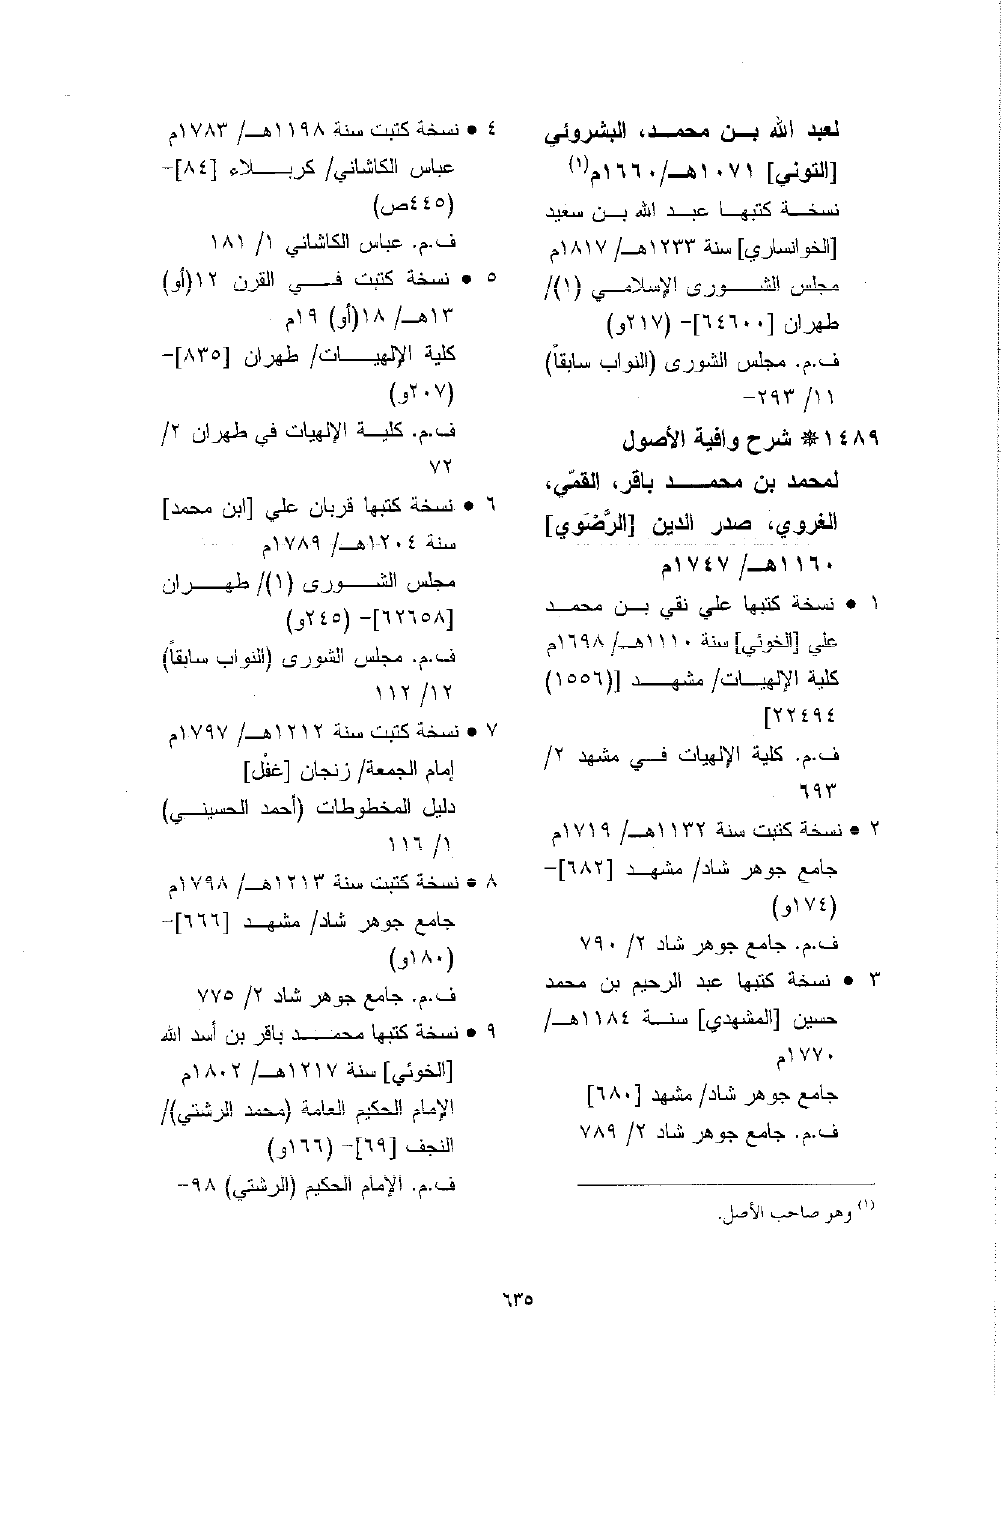 لعبد الله بن محمد، البشروئي
[التوني] ١٠٧١هـ/١٦٦٠م(١)
نسخة كتبها عبد الله بن سعيد
[الخوانساري] سنة ١٢٣٣هـ/ ١٨١٧م
مجلس الشورى الإسلامي (١)/
طهران [٦٤٦٠٠]- (٢١٧و)
ف.م. مجلس الشورى (النواب سابقاً)
١١/ ٢٩٣-
١٤٨٩* شرح وافية الأصول
لمحمد بن محمد باقر، القمّي،
الغروي، صدر الدين [الرَّضَوي]
١١٦٠هـ/ ١٧٤٧م
١ • نسخة كتبها علي نقي بن محمد
علي [الخوئي] سنة ١١١٠هـ/ ١٦٩٨م
كلية الإلهيات/ مشهد [(١٥٥٦)
٢٢٤٩٤]
ف.م. كلية الإلهيات في مشهد ٢/
٦٩٣
٢ • نسخة كتبت سنة ١١٣٢هـ/ ١٧١٩م
جامع جوهر شاد/ مشهد [٦٨٢]-
(١٧٤و)
ف.م. جامع جوهر شاد ٢/ ٧٩٠
٣ • نسخة كتبها عبد الرحيم بن محمد
حسين [المشهدي] سنة ١١٨٤هـ/
١٧٧٠م
جامع جوهر شاد/ مشهد [٦٨٠]
ف.م. جامع جوهر شاد ٢/ ٧٨٩
(١) وهو صاحب الأصل.
٤ • نسخة كتبت سنة ١١٩٨هـ/ ١٧٨٣م
عباس الكاشاني/ كربلاء [٨٤]-
(٤٤٥ص)
ف.م. عباس الكاشاني ١/ ١٨١
٥ • نسخة كتبت في القرن ١٢(أو)
١٣هـ/ ١٨(أو) ١٩م
كلية الإلهيات/ طهران [٨٣٥]-
(٢٠٧و)
ف.م. كلية الإلهيات في طهران ٢/
٧٢
٦ • نسخة كتبها قربان علي [ابن محمد]
سنة ١٢٠٤هـ/ ١٧٨٩م
مجلس الشورى (١)/ طهران
[٦٢٦٥٨]- (٢٤٥و)
ف.م. مجلس الشورى (النواب سابقاً)
١٢/ ١١٢
٧ • نسخة كتبت سنة ١٢١٢هـ/ ١٧٩٧م
إمام الجمعة/ زنجان [غفْل]
دليل المخطوطات (أحمد الحسيني)
١/ ١١٦
٨ • نسخة كتبت سنة ١٢١٣هـ/ ١٧٩٨م
جامع جوهر شاد/ مشهد [٦٦٦]-
(١٨٠و)
ف.م. جامع جوهر شاد ٢/ ٧٧٥
٩ • نسخة كتبها محمد باقر بن أسد الله
[الخوئي] سنة ١٢١٧هـ/ ١٨٠٢م
الإمام الحكيم العامة (محمد الرشتي)/
النجف [٦٩]- (١٦٦و)
ف.م. الإمام الحكيم (الرشتي) ٩٨-
٦٣٥